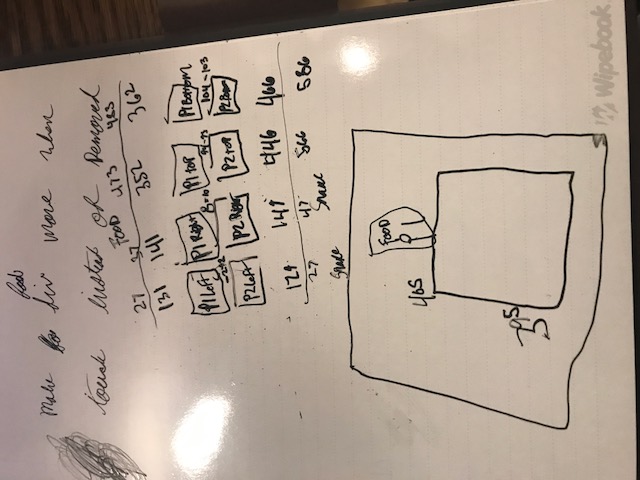 food
Make div move when
touch instead of Removed
FOOD
27 37 473 483
131 141 352 362
P1 Left P1 Right P1 top P1 Bottom
P2 Left P2 Right P2 top P2 Bottom
129 149 446 466
27 47 566 586
Snake Snake
FOOD
405
395
Wipebook